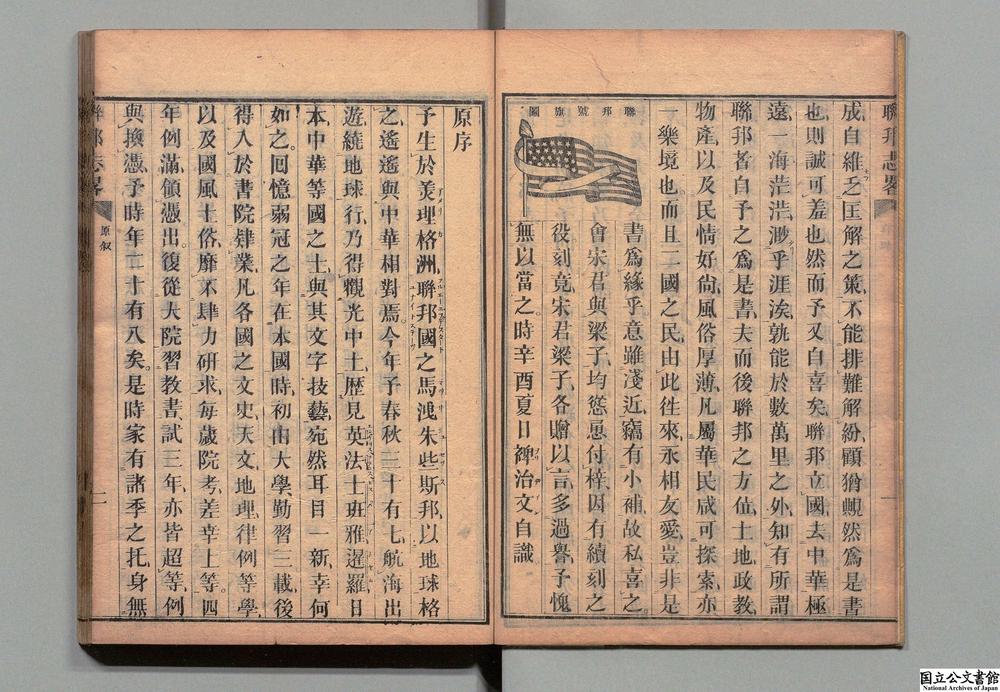 聯邦志畧
成自維乏匡解之策不能排難解紛顧猶覥然爲是書
也則誠可羞也然而予又自喜矣聯邦立國去中華極
遠一海茫茫渺乎涯涘孰能於數萬里之外知有所謂
聯邦者自予之爲是書夫而後聯邦之方位土地政教
物產以及民情好尙風俗厚薄凡屬華民咸可探索亦
一樂境也而且二國之民由此徃來永相友愛豈非是
聯邦號旗圖
書爲緣乎意雖淺近竊有小補故私喜之
會宋君與梁子均慫恿付梓因有續刻之
役刻竟宋君梁子各贈以言多過譽予愧
無以當之時辛酉夏日裨治文自識
原序
予生於美理格洲聯邦國之馬洩朱些斯邦以地球格
之遙遙與中華相對焉今年予春秋三十有七航海出
遊繞地球行乃得觀光中土歷見英法士班雅暹羅日
本中華等國之士與其文字技藝宛然耳目一新幸何
如之回憶弱冠之年在本國時初由大學勤習三載後
得入於書院肄業凡各國之文史天文地理律例等學
以及國風土俗靡不肆力研求每歲院考差幸上等四
年例滿領憑出復從大院習教書試三年亦皆超等例
與換憑予時年二十有八矣是時家有諸季之托身無
聯邦志畧
原叙
二